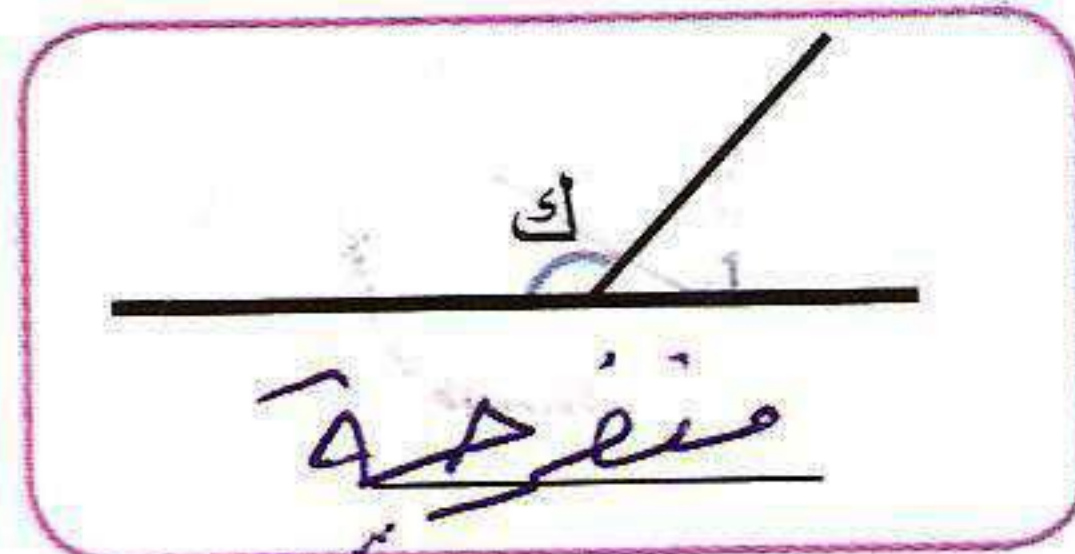 ك
منفرجة